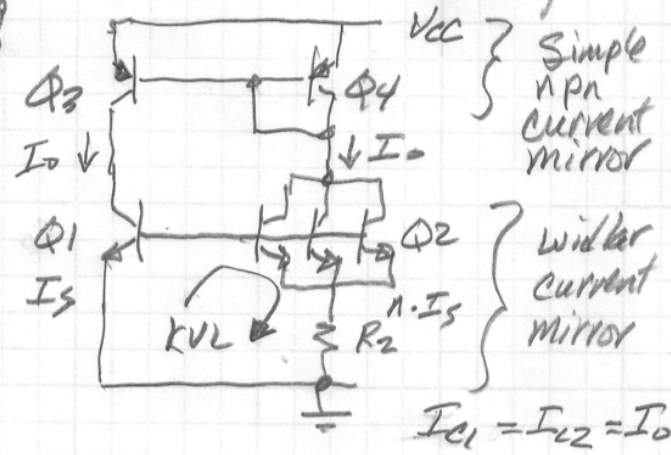 Vcc
Simple
npn
current
mirror
Q3
Q4
Io
Io
Q1
Q2
Is
n·Is
KVL
R2
widlar
current
mirror
Ic1 = Ic2 = Io